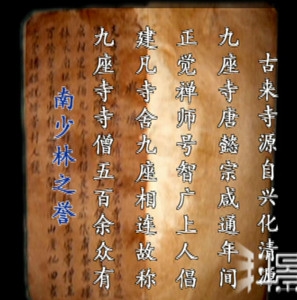 古来寺源自兴化清源
九座寺唐懿宗咸通年间
正觉禅师号智广上人倡
建凡寺舍九座相连故称
九座寺寺僧五百余众有
南少林之誉